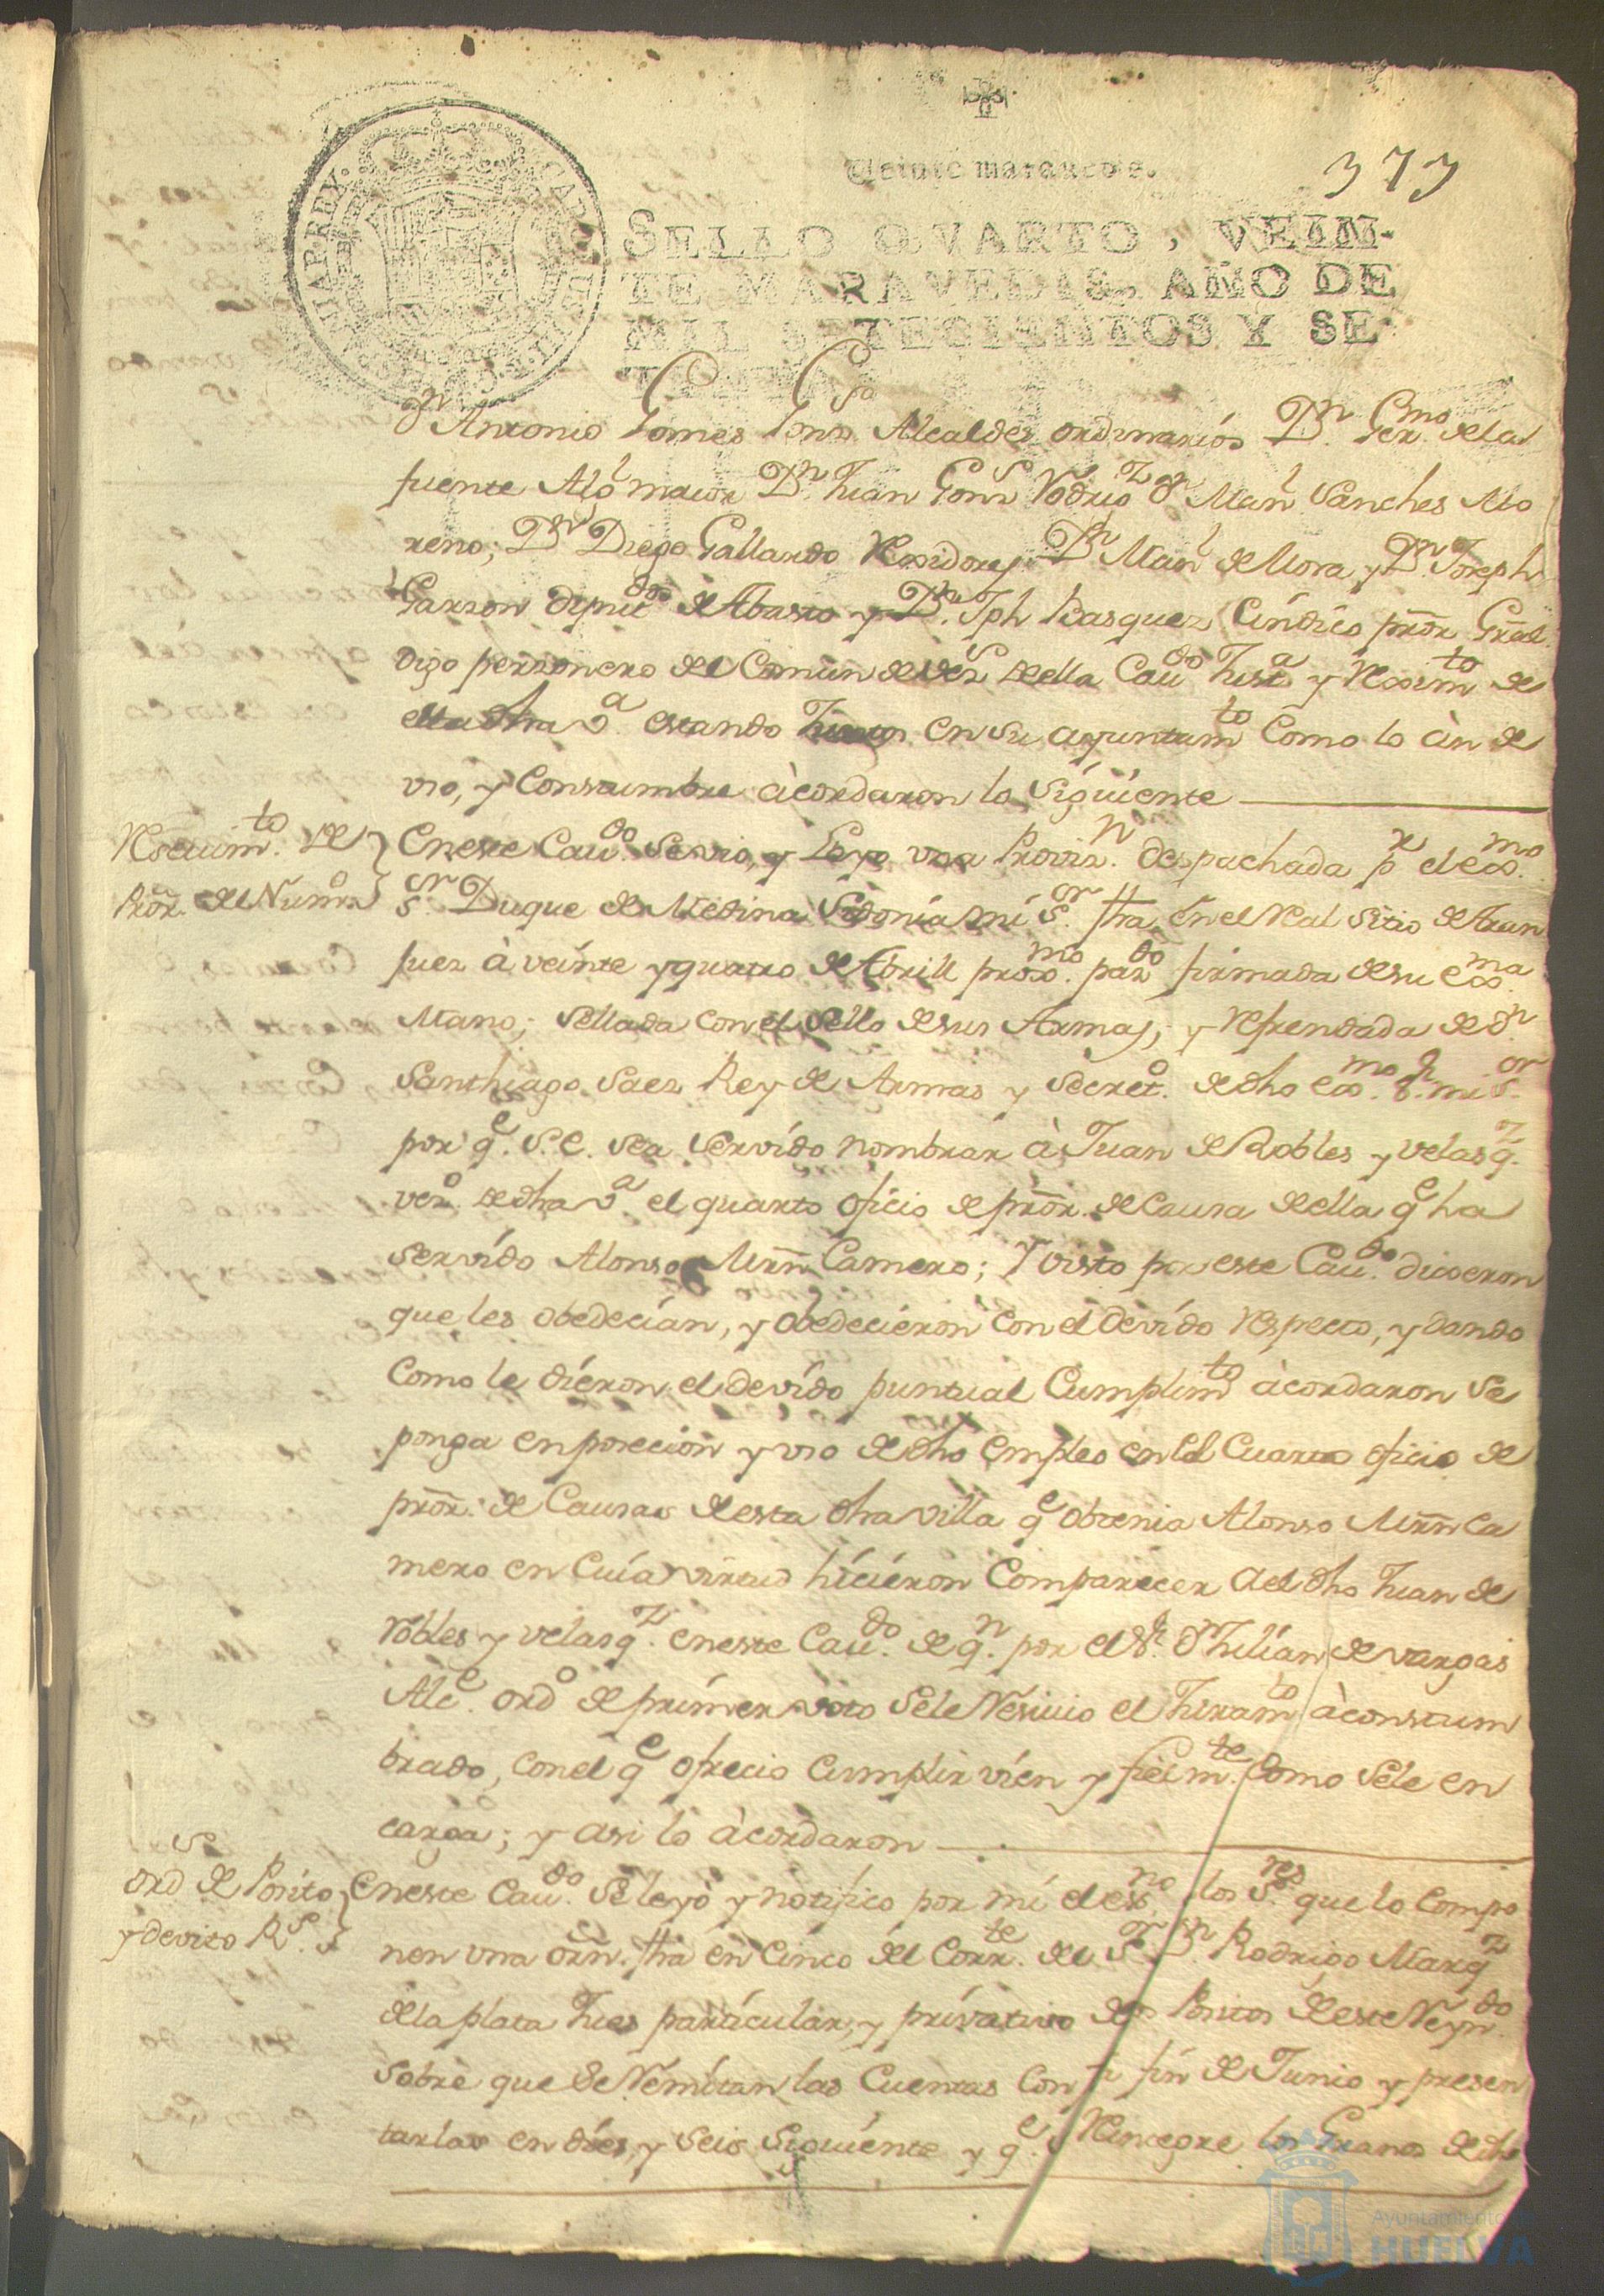 Veinte maravedis.
373
SELLO QVARTO, VEIN-
TE MARAVEDIS, AÑO DE
MIL SETECIENTOS Y SE-
CAROLUS III D. G. HISPANIAR. REX.
Dn Antonio Gomes Alcaldes ordinarios Dn Germo de la
fuente Algl maior Dn Juan Gons Dn Manl Sanches Mo
reno; Dn Diego Gallardo Rexidores Dn Manl de Mora y Dn Joseph
Garzon diputdos de Abasto y Dn Jph Basquez Cindico pror Gral
digo personero del Comun de vezs de ella Caudo Justa y Reximto de
esta dha va estando Juntos en su ayuntamto Como lo àn de
vso, y Constumbre àcordaron lo Siguiente
Reseuimto de
Pror del Numro
En este Caudo Se vio, y Leyo vna Provisn despachada pr el exmo
sr Duque de Medina Sidonia mi sor fha en el Real Sitio de Aran
juez à veinte y quatro de Abrill proxmo pasdo firmada de su exma
Mano; Sellada con el Sello de sus Armas; y Refrendada de dn
Santhiago Saez Rey de Armas y Secreto de dho exmo sr mi sor
por qe S.E. sea Servido nombrar à Juan de Robles y Velasqz
vezo de dha va el quarto oficio de pror de Causa de ella qe ha
Servido Alonso Mrn Camero; Y visto por este Caudo dixeron
que les obedecian, y obedecieron con el devido respecto, y dando
Como le dieron el devido puntual Cumplimto àcordaron Se
ponga en posecion y vso de dho empleo en el Cuarto oficio de
pror de Causas de esta dha villa qe obtenia Alonso Mrn Ca
mero en Cuia virtud hicieron Comparecer a el dho Juan de
Robles y velasqz en este Caudo de qn por el Sr Dn Julian de vargas
Alce ordo de primer voto Se le Resiuio el Juramto àconstum
brado, con el qe ofrecio Cumplir vien y fielmte Como Se le en
carga; y asi lo àcordaron
Ords de Posito
y devito Rs
En este Caudo Se leyò y notifico por mi el esno a los Sres que lo Compo
nen vna orn fha en Cinco del Corrte del Sor Dn Rodrigo Marqz
de la plata Jues particular, y privativo de Positos de este Reyndo
Sobre que Se Remitan las Cuentas Con fin de Junio y presen
tarlas en dies y Seis Siguiente y qe Reintegre los Granos de dho
Ayuntamiento de
HUELVA